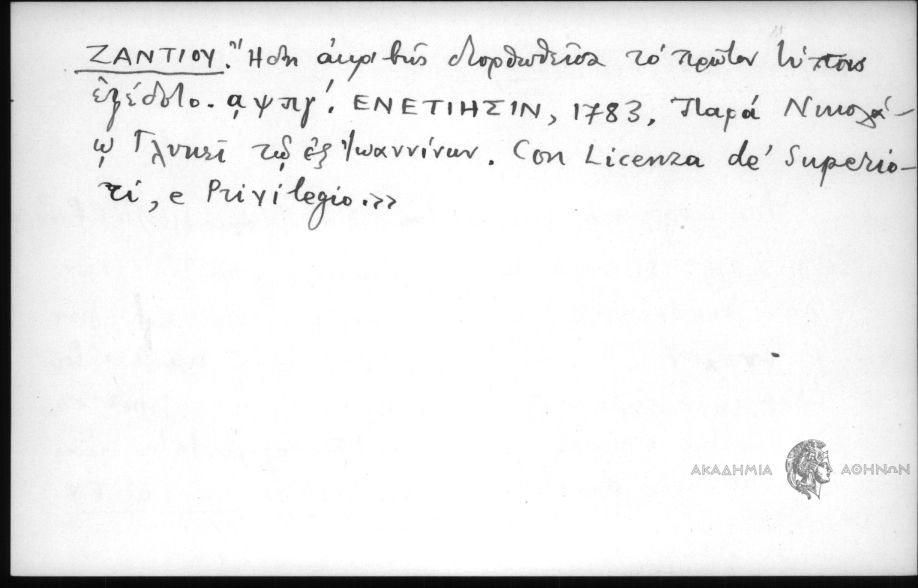 ΖΑΝΤΙΟΥ. Ἤδη ἀκριβῶς διορθωθεῖσα τό πρῶτον τύποις
ἐξέδοτο. αψπγ΄. ΕΝΕΤΙΗΣΙΝ, 1783, Παρά Νικολά-
ῳ Γλυκεῖ τῷ ἐξ Ἰωαννίνων. Con Licenza de' Superio-
ri, e Privilegio.»
ΑΚΑΔΗΜΙΑ ΑΘΗΝΩΝ